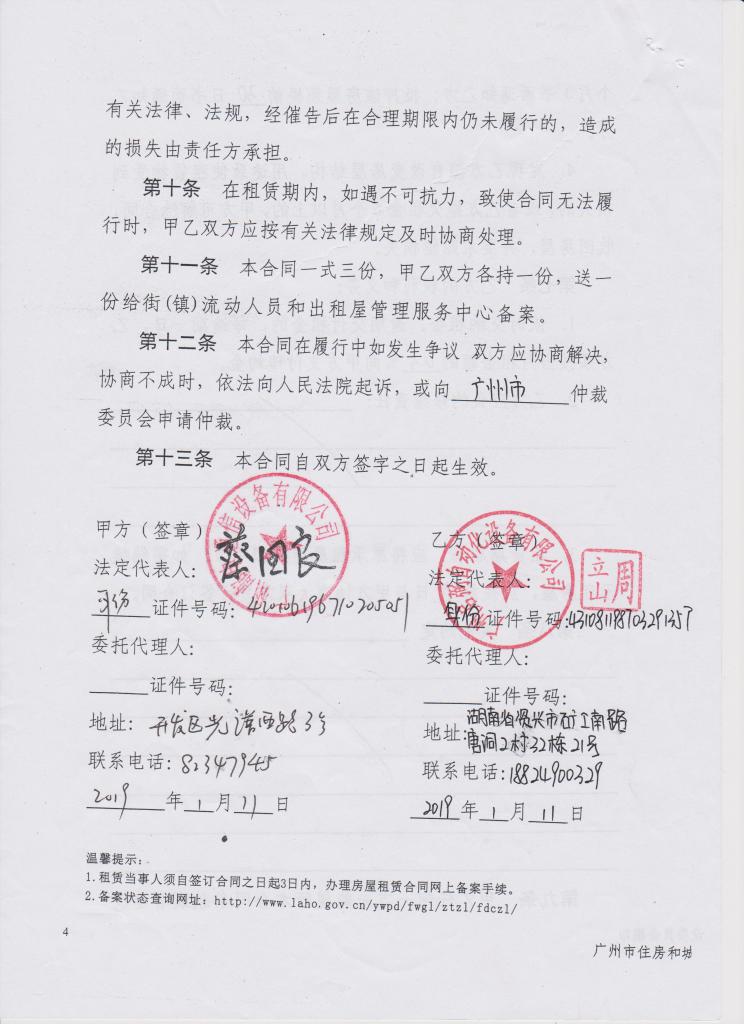 有关法律、法规，经催告后在合理期限内仍未履行的，造成
的损失由责任方承担。
第十条 在租赁期内，如遇不可抗力，致使合同无法履
行时，甲乙双方应按有关法律规定及时协商处理。
第十一条 本合同一式三份，甲乙双方各持一份，送一
份给街(镇)流动人员和出租屋管理服务中心备案。
第十二条 本合同在履行中如发生争议 双方应协商解决，
协商不成时，依法向人民法院起诉，或向 广州市 仲裁
委员会申请仲裁。
第十三条 本合同自双方签字之日起生效。
甲方（签章）
法定代表人：蔡国良
信设备有限公司
身份 证件号码：420106196710205051
委托代理人：
______证件号码：
地址：开发区光谱西路3号
联系电话：82347945
2019 年 1 月 11 日
乙方（签章）
法定代表人：
自动化设备有限公司
周立山
身份 证件号码：431081198703291357
委托代理人：
______证件号码：
地址：湖南省资兴市矿工南路
唐洞2村32栋21号
联系电话：18824900329
2019 年 1 月 11 日
温馨提示：
1.租赁当事人须自签订合同之日起3日内，办理房屋租赁合同网上备案手续。
2.备案状态查询网址：http://www.laho.gov.cn/ywpd/fwgl/ztzl/fdczl/
4
广州市住房和城